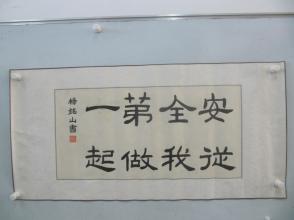 安從
全我
第做
一起
楊銘山書